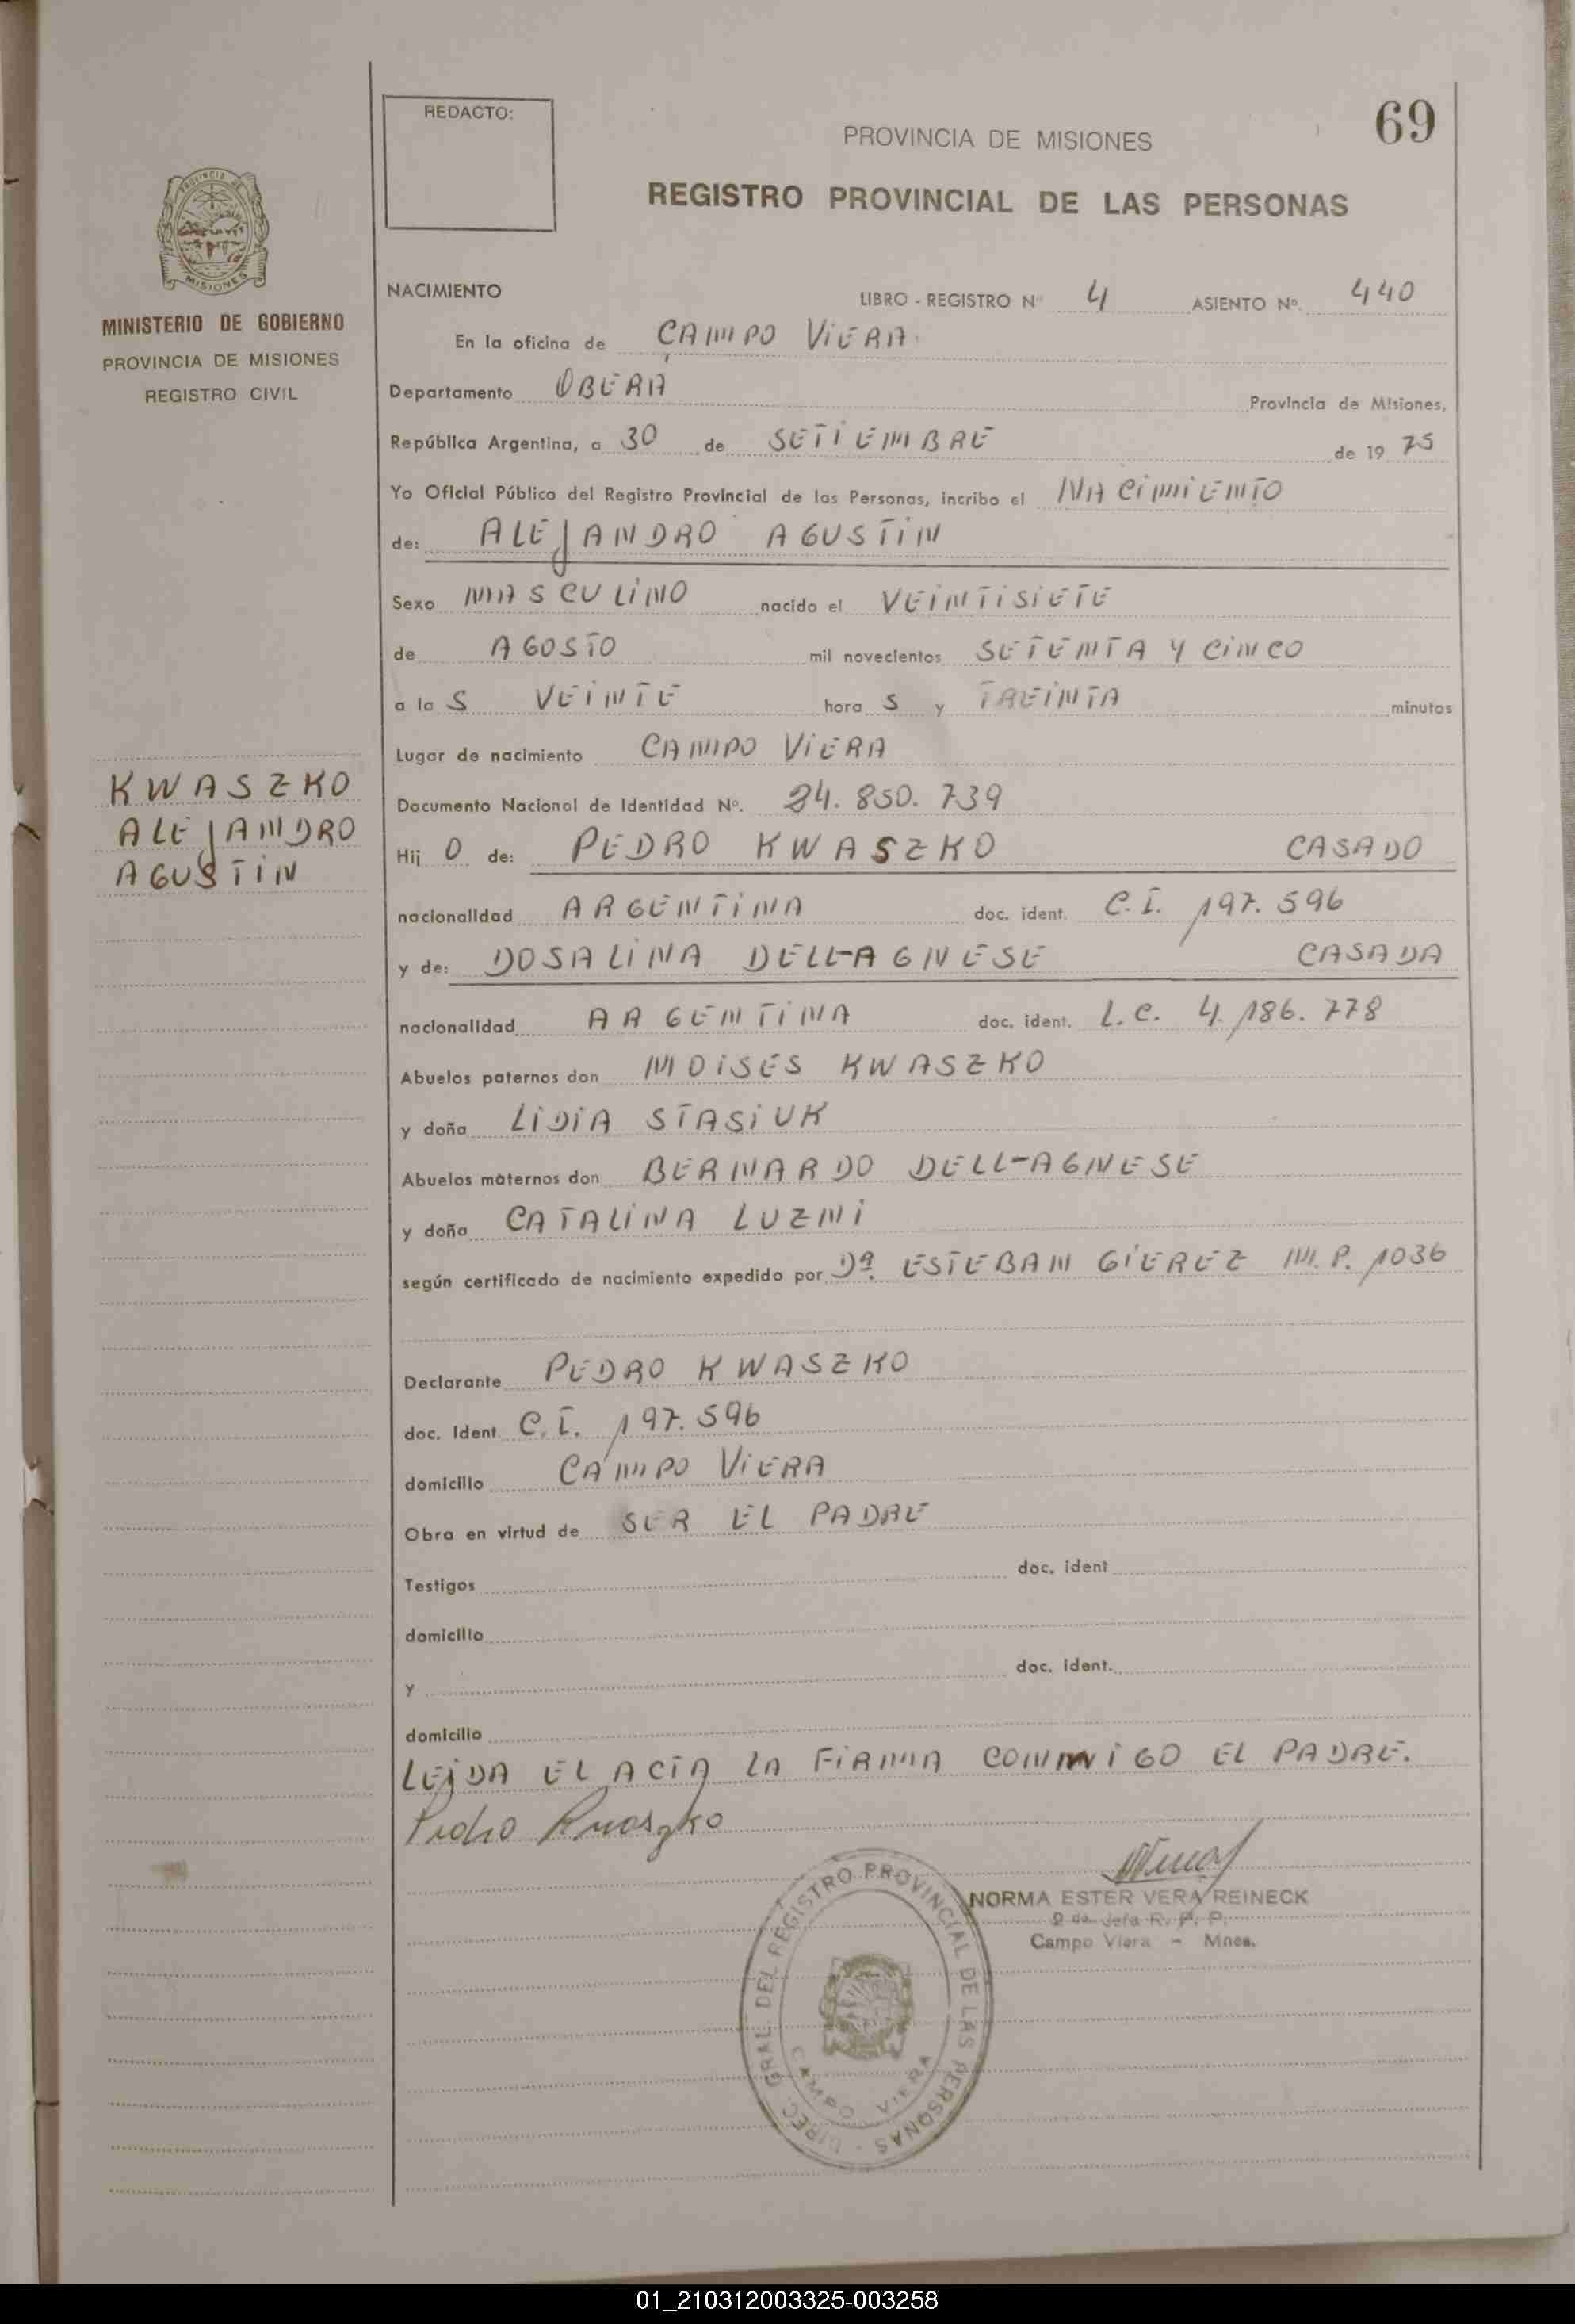 REDACTO:
69
PROVINCIA DE MISIONES
REGISTRO PROVINCIAL DE LAS PERSONAS
PROVINCIA DE
MISIONES
MINISTERIO DE GOBIERNO
PROVINCIA DE MISIONES
REGISTRO CIVIL
KWASZKO
ALEJANDRO
AGUSTIN
NACIMIENTO LIBRO - REGISTRO Nº 4 ASIENTO Nº. 440
En la oficina de CAMPO VIERA
Departamento OBERA Provincia de Misiones,
República Argentina, a 30 de SETIEMBRE de 19 75
Yo Oficial Público del Registro Provincial de las Personas, incribo el NACIMIENTO
de: ALEJANDRO AGUSTIN
Sexo MASCULINO nacido el VEINTISIETE
de AGOSTO mil novecientos SETENTA Y CINCO
a la S VEINTE hora S y TREINTA minutos
Lugar de nacimiento CAMPO VIERA
Documento Nacional de Identidad Nº. 24.850.739
Hij O de: PEDRO KWASZKO CASADO
nacionalidad ARGENTINA doc. ident. C.I. 197.596
y de: DOSALINA DELL-AGNESE CASADA
nacionalidad ARGENTINA doc. ident. L.C. 4.186.778
Abuelos paternos don MOISES KWASZKO
y doña LIDIA STASIUK
Abuelos maternos don BERNARDO DELL-AGNESE
y doña CATALINA LUZNI
según certificado de nacimiento expedido por Dº. ESTEBAN GIEREZ M.P. 1036
Declarante PEDRO KWASZKO
doc. Ident. C.I. 197.596
domicilio CAMPO VIERA
Obra en virtud de SER EL PADRE
Testigos doc. ident
domicilio
y doc. ident.
domicilio
LEIDA EL ACTA LA FIRMA CONMIGO EL PADRE.
Pedro Kwaszko
NORMA ESTER VERA REINECK
2 da. Jefa R. P. P.
Campo Viera - Mnes.
DIREC. GRAL. DEL REGISTRO PROVINCIAL DE LAS PERSONAS -
CAMPO VIERA
01_210312003325-003258